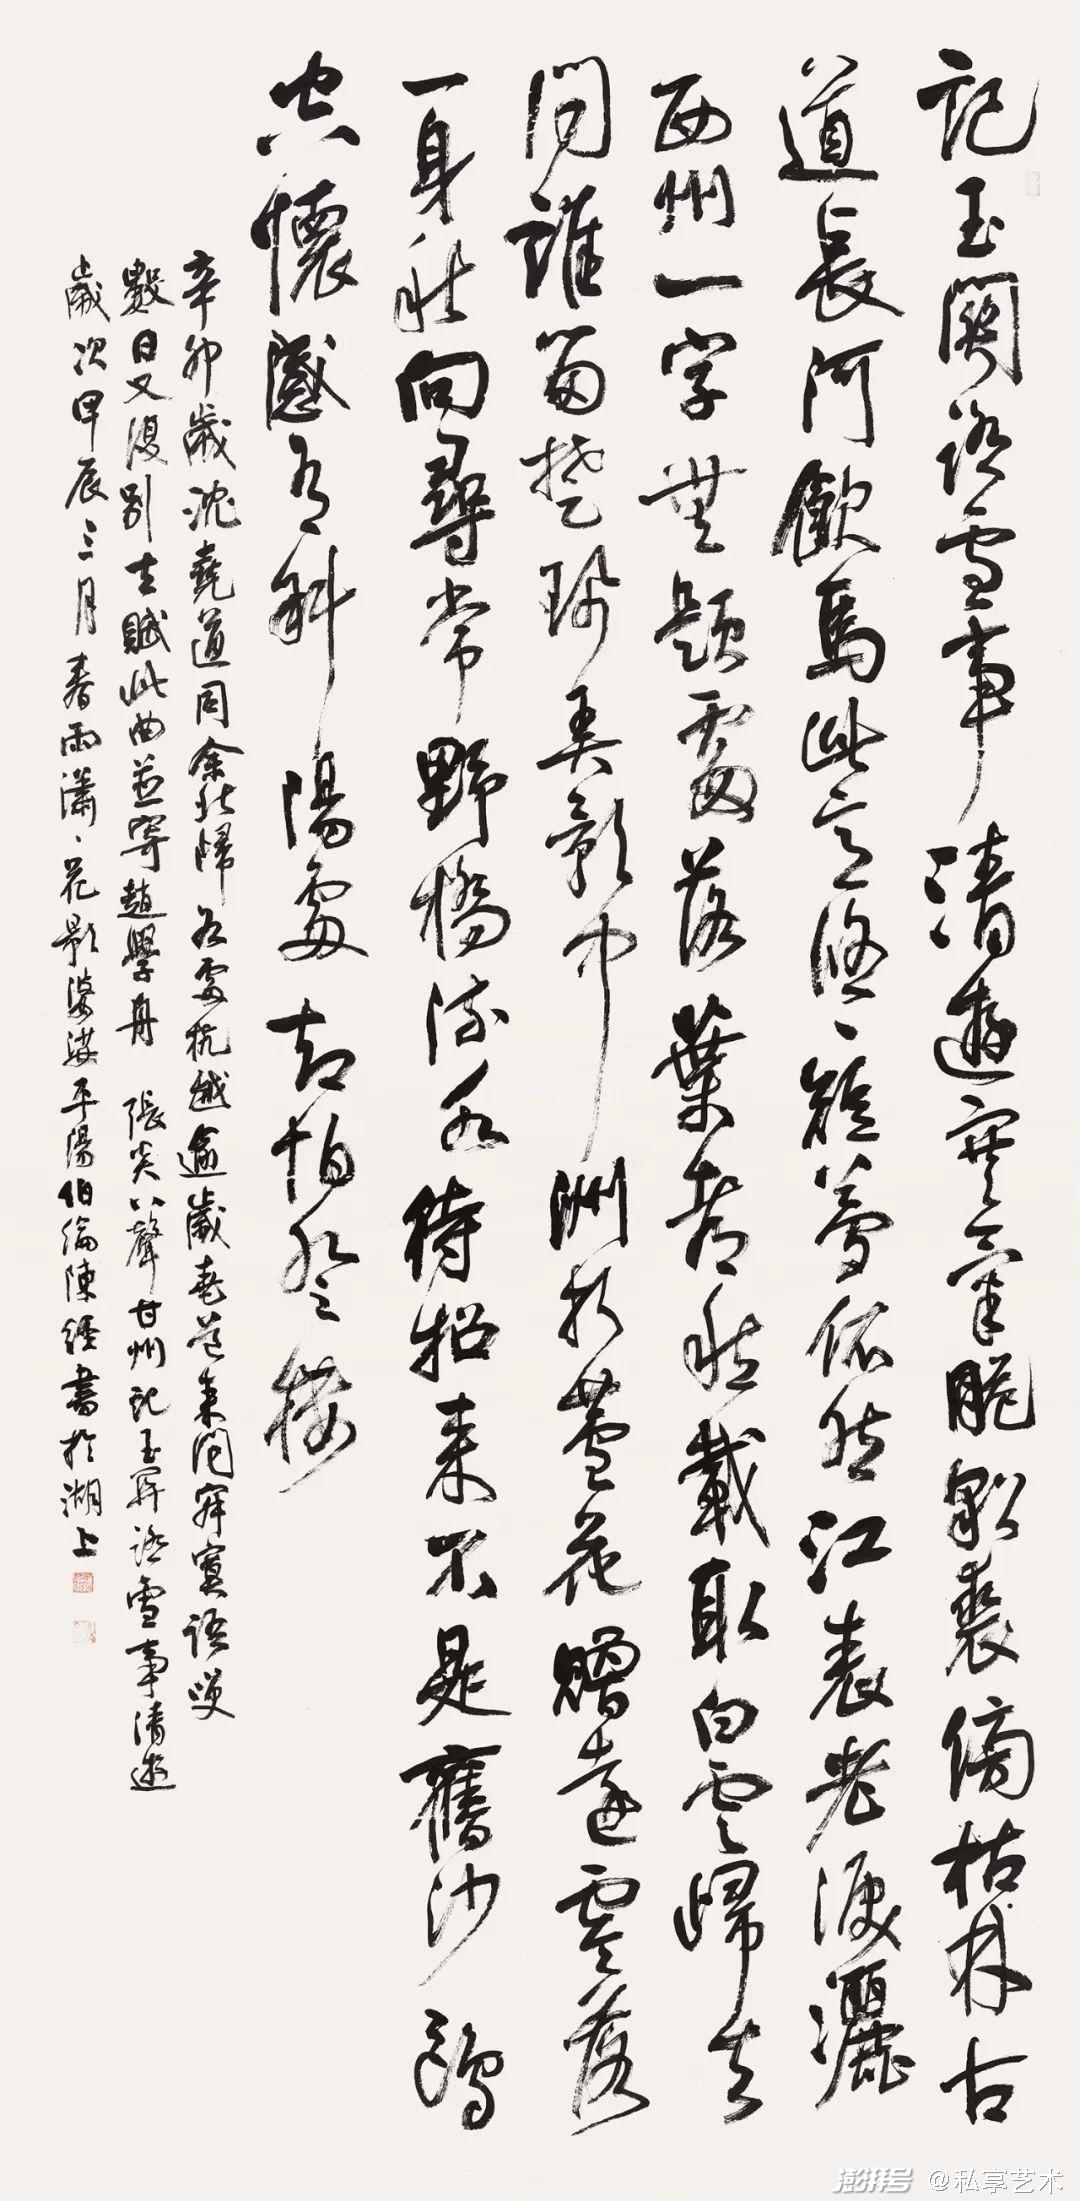 記玉關踏雪事清遊寒氣脆貂裘傍枯林古
道長河飲馬此意悠〻短夢依然江表老淚灑
西州一字無題處落葉都愁載取白雲歸去
問誰留楚珮弄影中洲折蘆花贈遠零落
一身秋向尋常野橋流水待招來不是舊沙鷗
空懷感有斜陽處却怕登樓
辛卯歲沈堯道同余北歸各處杭越逾歲堯道來問寂寞語笑
數日又復別去賦此曲並寄趙學舟 張炎八聲甘州記玉關踏雪事清遊
歲次甲辰三月春雨瀟〻花影婆娑平陽伯倫陳經書於湖上
澎湃号 @私享艺术